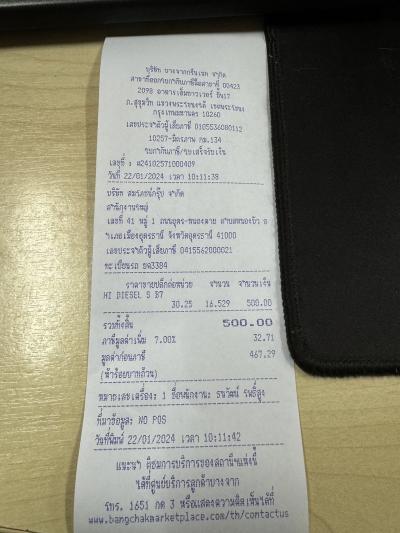 บริษัท บางจากกรีนเนท จำกัด
สาขาที่ออกใบกำกับภาษีคือสาขาที่ 00423
2098 อาคารเอ็มทาวเวอร์ ชั้น17
ถ.สุขุมวิท แขวงพระโขนงใต้ เขตพระโขนง
กรุงเทพมหานคร 10260
เลขประจำตัวผู้เสียภาษี 0105536080112
10257-มิตรภาพ กม.134
ใบกำกับภาษี/ใบเสร็จรับเงิน
เลขที่ : a24102571000409
วันที่ 22/01/2024 เวลา 10:11:38
บริษัท สมรภชน์กรุ๊ป จำกัด
สำนักงานใหญ่
เลขที่ 41 หมู่ 1 ถนนอุดร-หนองคาย ตำบลหนองบัว อ
ำเภอเมืองอุดรธานี จังหวัดอุดรธานี 41000
เลขประจำตัวผู้เสียภาษี 0415562000021
ทะเบียนรถ ยจ3384
ราคาขายปลีกต่อหน่วย จำนวน จำนวนเงิน
HI DIESEL S B7
30.25 16.529 500.00
รวมทั้งสิ้น 500.00
ภาษีมูลค่าเพิ่ม 7.00% 32.71
มูลค่าก่อนภาษี 467.29
(ห้าร้อยบาทถ้วน)
หมายเลขเครื่อง: 1 ชื่อพนักงาน: ธนวัฒน์
ที่มาข้อมูล: NO POS
วันที่พิมพ์ 22/01/2024 เวลา 10:11:42
แนะนำ ติชมการบริการของสถานีฯแห่งนี้
ได้ที่ศูนย์บริการลูกค้าบางจาก
โทร. 1651 กด 3 หรือแสดงความคิดเห็นได้ที่
www.bangchakmarketplace.com/th/contactus